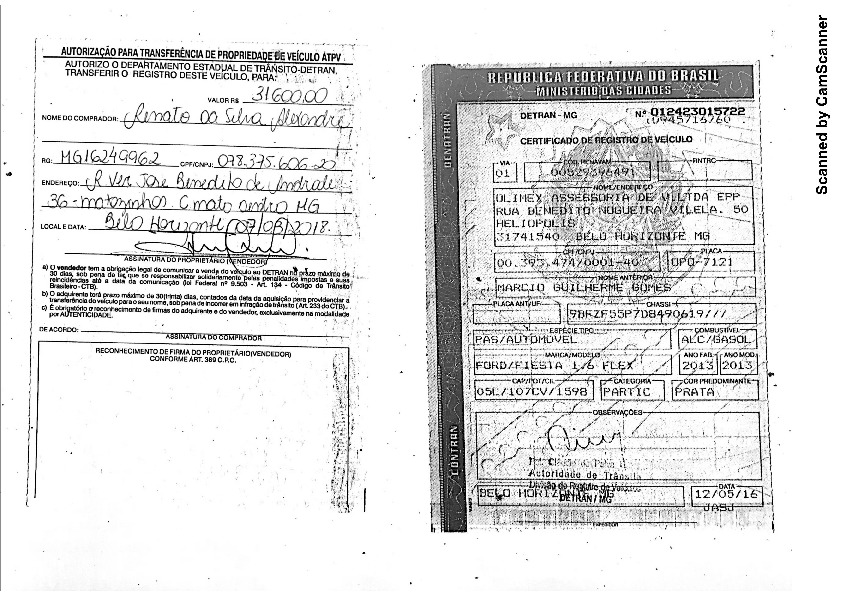 AUTORIZAÇÃO PARA TRANSFERÊNCIA DE PROPRIEDADE DE VEÍCULO ATPV
AUTORIZO O DEPARTAMENTO ESTADUAL DE TRÂNSITO-DETRAN,
TRANSFERIR O REGISTRO DESTE VEÍCULO, PARA:
VALOR R$ 31600,00
NOME DO COMPRADOR: Renato da Silva Alexandre
RG: MG16249962 CPF/CNPJ: 078.375.606-20
ENDEREÇO: R Ver Jose Benedito de Andrade
36 - matozinhos C mato dentro MG
LOCAL E DATA: Belo Horizonte 07/06/2018.
ASSINATURA DO PROPRIETÁRIO (VENDEDOR)
a) O vendedor tem a obrigação legal de comunicar a venda do veículo ao DETRAN no prazo máximo de
30 dias, sob pena de ter que se responsabilizar solidariamente pelas penalidades impostas e suas
reincidências até a data da comunicação (lei Federal nº 9.503 - Art. 134 - Código de Trânsito
Brasileiro - CTB).
b) O adquirente terá prazo máximo de 30(trinta) dias, contados da data da aquisição para providenciar a
transferência do veículo para o seu nome, sob pena de incorrer em infração de trânsito (Art. 233 do CTB).
c) É obrigatório o reconhecimento de firmas do adquirente e do vendedor, exclusivamente na modalidade
por AUTENTICIDADE.
DE ACORDO:
ASSINATURA DO COMPRADOR
RECONHECIMENTO DE FIRMA DO PROPRIETÁRIO(VENDEDOR)
CONFORME ART. 369 C.P.C.
REPÚBLICA FEDERATIVA DO BRASIL
MINISTÉRIO DAS CIDADES
DENATRAN
CONTRAN
DETRAN - MG Nº 012423015722
10945716760
CERTIFICADO DE REGISTRO DE VEÍCULO
VIA COD. RENAVAM RNTRC
01 00529396491
NOME/ENDEREÇO
OLIMEX ASSESSORIA DE V LTDA EPP
RUA BENEDITO NOGUEIRA VILELA, 50
HELIOPOLIS
31741540 BELO HORIZONTE MG
CPF/CNPJ PLACA
00.395.474/0001-40 OPO-7121
NOME ANTERIOR
MARCIO GUILHERME GOMES
PLACA ANT/UF CHASSI
9BFZF55P7D8490619///
ESPÉCIE TIPO COMBUSTÍVEL
PAS/AUTOMOVEL ALC/GASOL
MARCA/MODELO ANO FAB. ANO MOD.
FORD/FIESTA 1.6 FLEX 2013 2013
CAP/POT/CIL CATEGORIA COR PREDOMINANTE
05L/107CV/1598 PARTIC PRATA
OBSERVAÇÕES
Autoridade de Trânsito
Divisão de Registro de Veículos
DETRAN / MG
BELO HORIZONTE MG
DATA
12/05/16
JASJ
Scanned by CamScanner